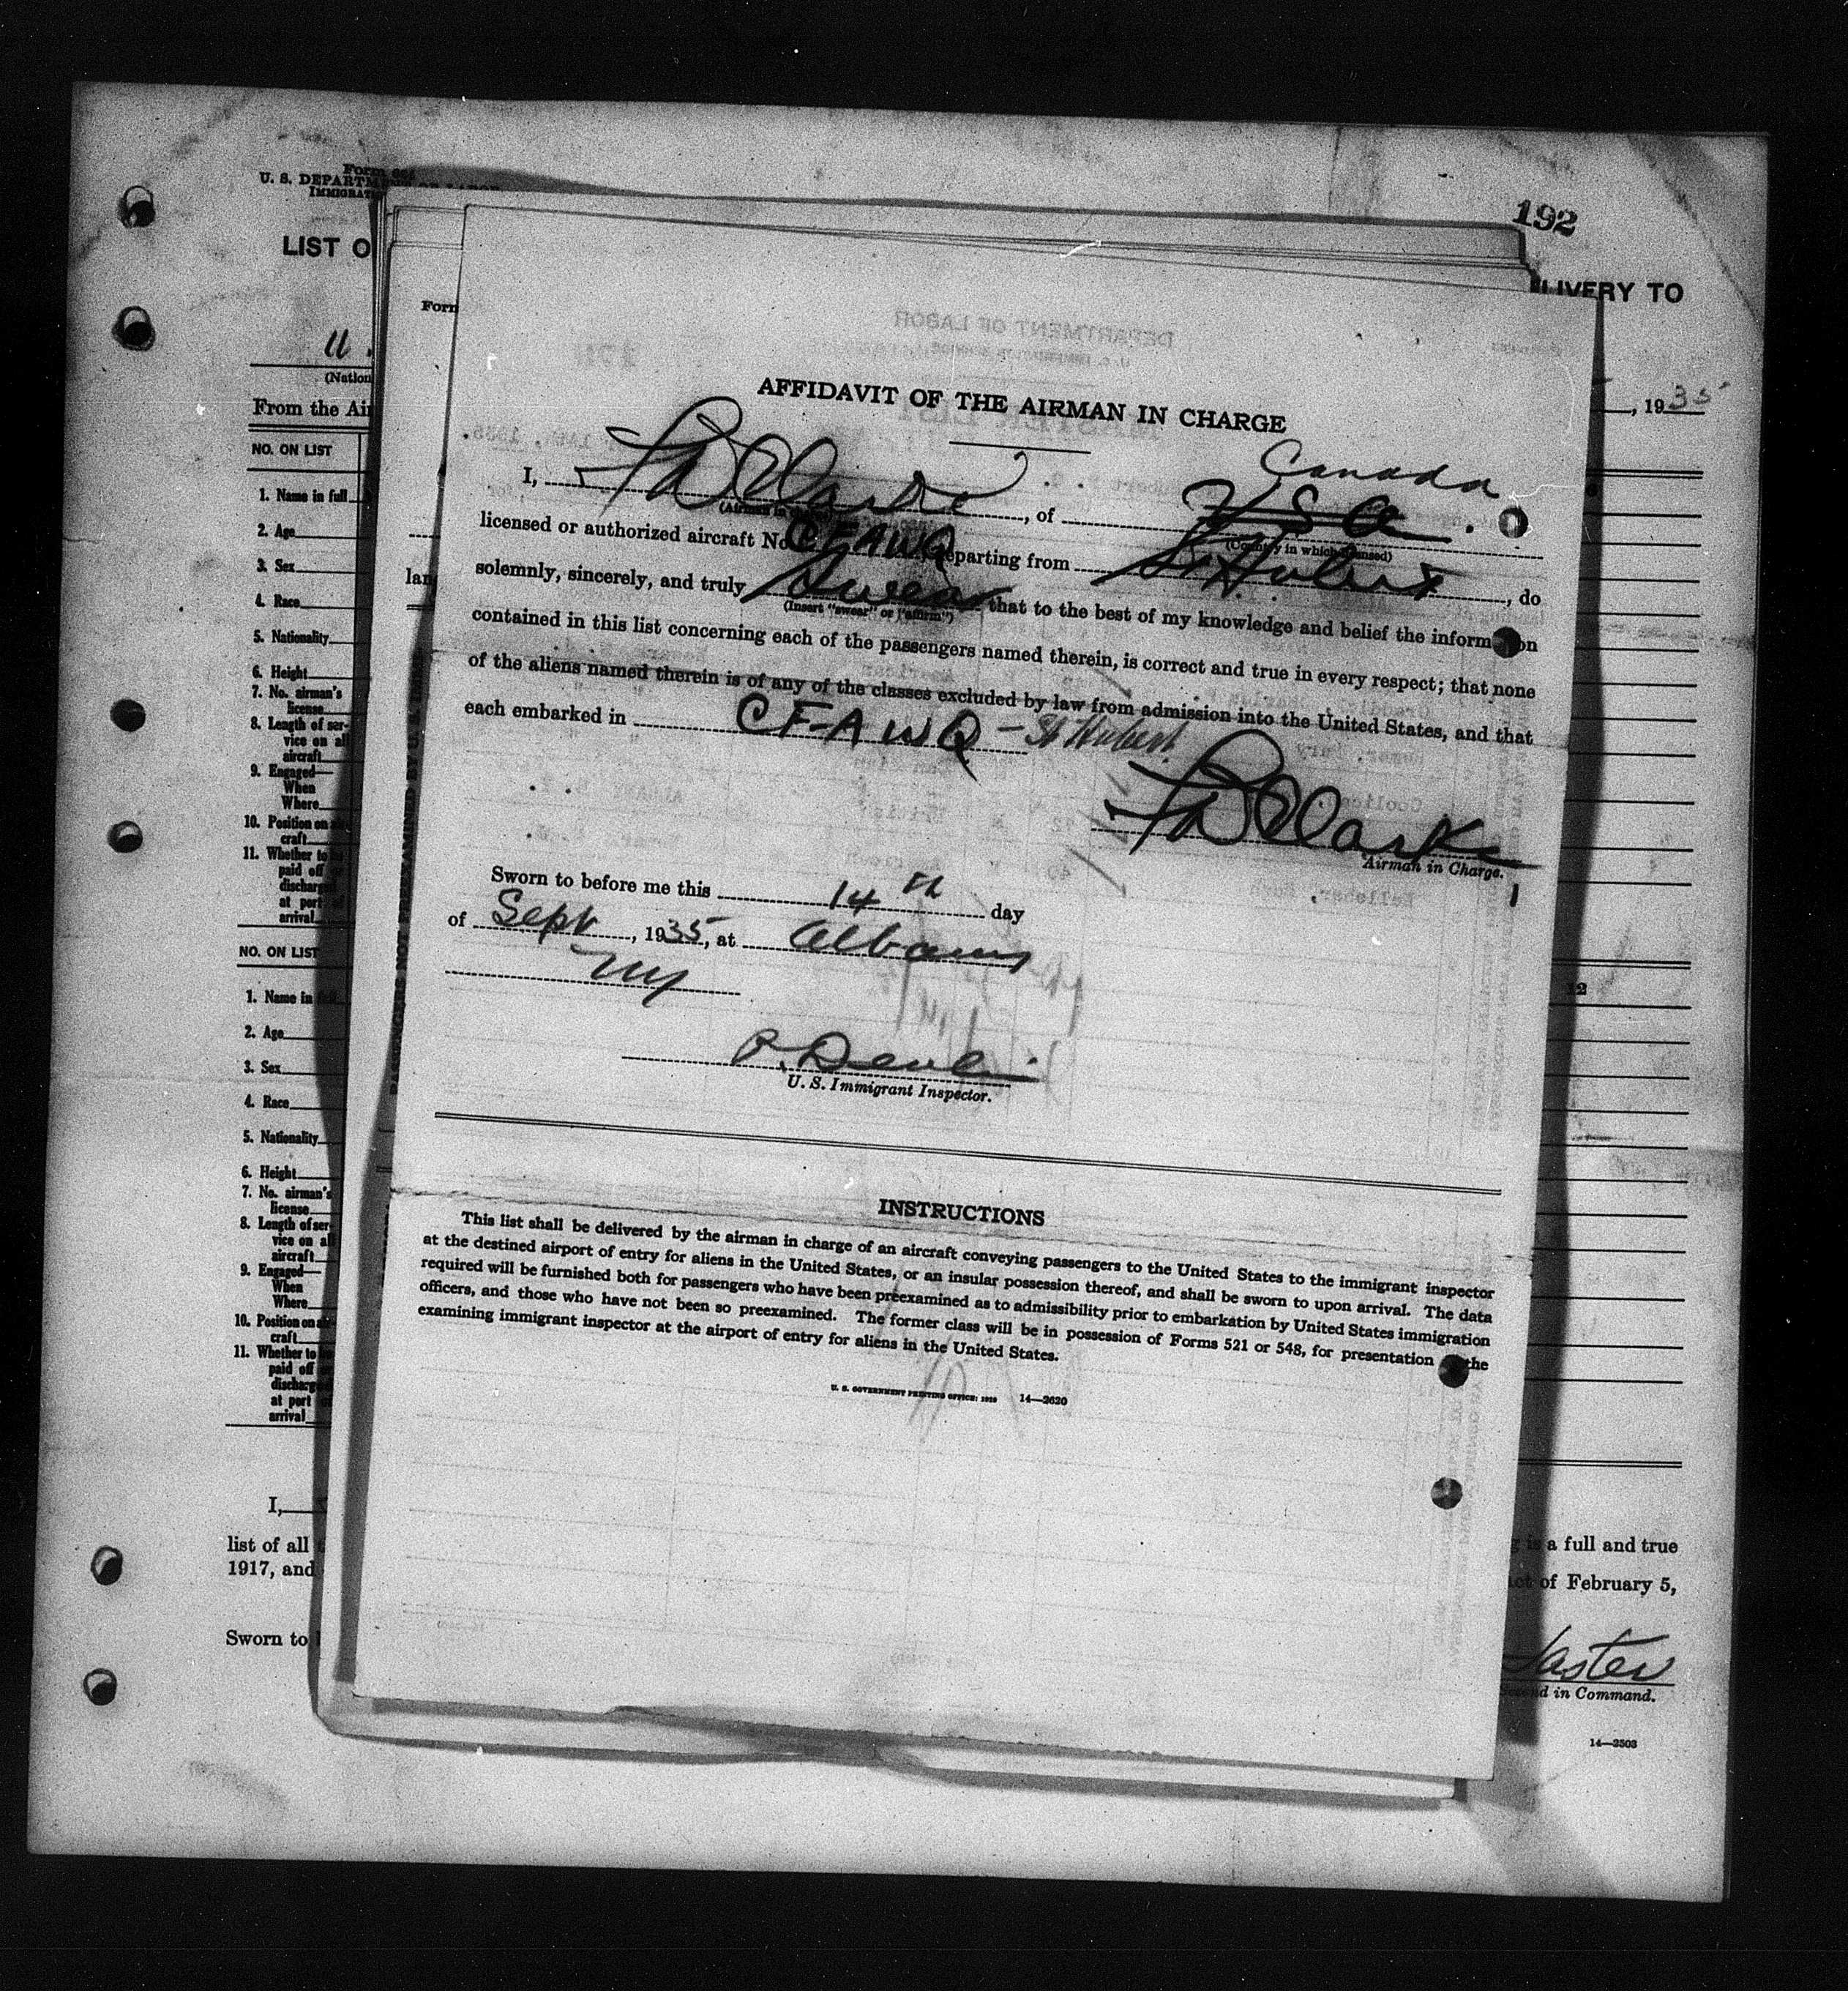 192
U. S. DEPARTM
IMMIGRAT
LIST O
LIVERY TO
U.
(Nation
, 1935
From the Air
Form
NO. ON LIST
1. Name in full
2. Age
3. Sex
4. Race
5. Nationality
6. Height
7. No. airman's
license
8. Length of ser-
vice on all
aircraft
9. Engaged—
When
Where
10. Position on air-
craft
11. Whether to be
paid off or
discharged
at port of
arrival
NO. ON LIST
12
1. Name in full
2. Age
3. Sex
4. Race
5. Nationality
6. Height
7. No. airman's
license
8. Length of ser-
vice on all
aircraft
9. Engaged—
When
Where
10. Position on air-
craft
11. Whether to be
paid off or
discharged
at port of
arrival
I,
list of all
g is a full and true
1917, and
act of February 5,
Sworn to
Second in Command.
14—2503
AFFIDAVIT OF THE AIRMAN IN CHARGE
Canada
I, Clarke, of U S A.
(Country in which licensed)
licensed or authorized aircraft No. CFAWQ, departing from St Hubert, do
solemnly, sincerely, and truly Swear that to the best of my knowledge and belief the information
(Insert "swear" or "affirm")
contained in this list concerning each of the passengers named therein, is correct and true in every respect; that none
of the aliens named therein is of any of the classes excluded by law from admission into the United States, and that
each embarked in CF-AWQ - St Hubert
Clarke
Airman in Charge.
Sworn to before me this 14th day
of Sept, 1935, at Albany
NY
P. Devlin
U. S. Immigrant Inspector.
INSTRUCTIONS
This list shall be delivered by the airman in charge of an aircraft conveying passengers to the United States to the immigrant inspector
at the destined airport of entry for aliens in the United States, or an insular possession thereof, and shall be sworn to upon arrival. The data
required will be furnished both for passengers who have been preexamined as to admissibility prior to embarkation by United States immigration
officers, and those who have not been so preexamined. The former class will be in possession of Forms 521 or 548, for presentation to the
examining immigrant inspector at the airport of entry for aliens in the United States.
U. S. GOVERNMENT PRINTING OFFICE: 14—2620